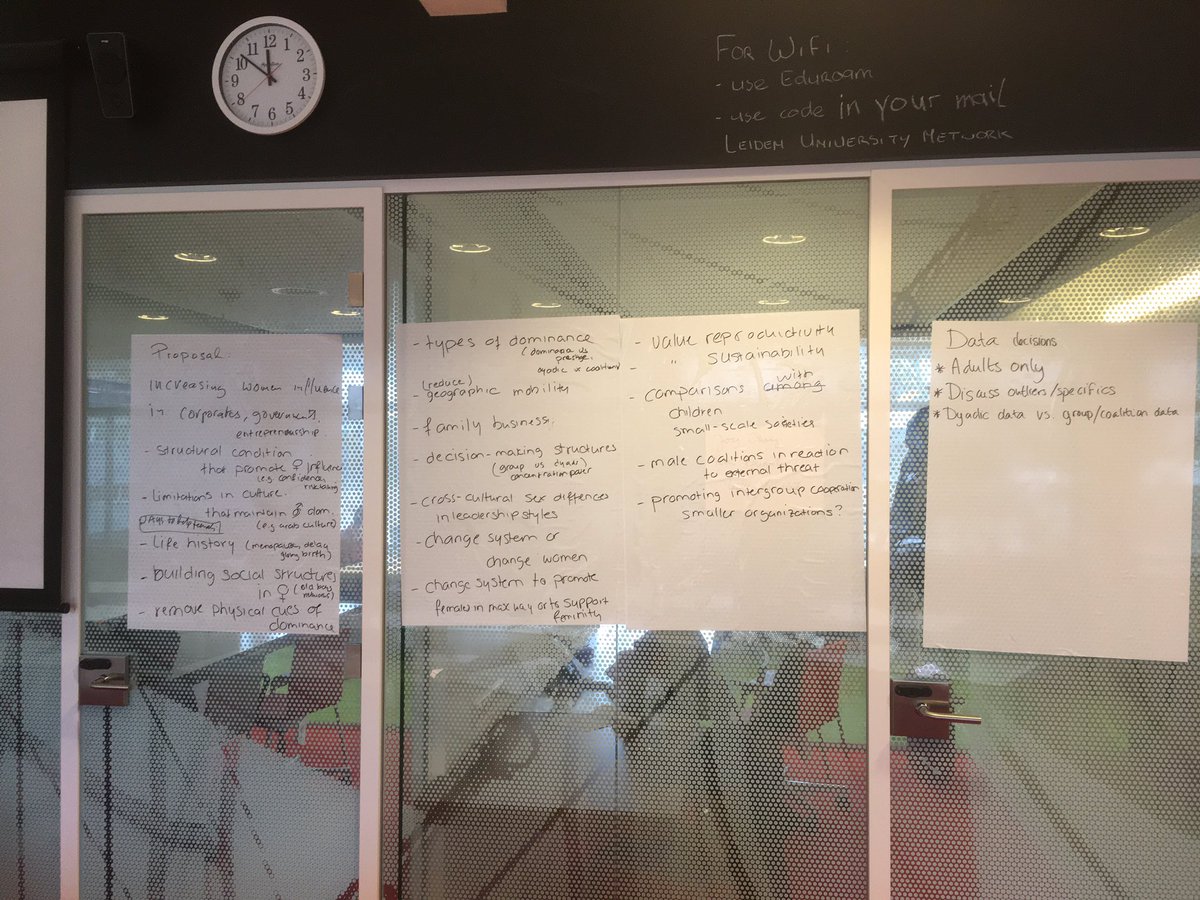 12
1
2
3
4
5
6
7
8
9
10
11
FOR WIFI:
- use Eduroam
- use code in your mail
LEIDEN UNIVERSITY NETWORK
Proposal:
increasing women influence
in corporates, government,
entrepreneurship.
- Structural condition
that promote ♀ influence
(e.g. confidence,
risktaking
- Limitations in culture.
that maintain ♂ dom.
(e.g. arab culture)
- Life history (menopause, delay
giving birth)
- building social structures
in ♀ (old boys
network)
- remove physical cues of
dominance
- types of dominance
(dominance vs
prestige,
dyadic vs coalitional
(reduce)
- geographic mobility
- family business,
- decision-making structures
(group vs dyadic
concentration power
- cross-cultural sex diffences
in leadership styles
- change system or
change women
- change system to promote
female in max way or to support
feminity
- value reproductivity
- " sustainability
- comparisons among with
children
small-scale societies
- male coalitions in reaction
to external threat
- promoting intergroup cooperation
smaller organizations?
Data decisions
* Adults only
* Discuss outliers/specifics
* Dyadic data vs. group/coalition data